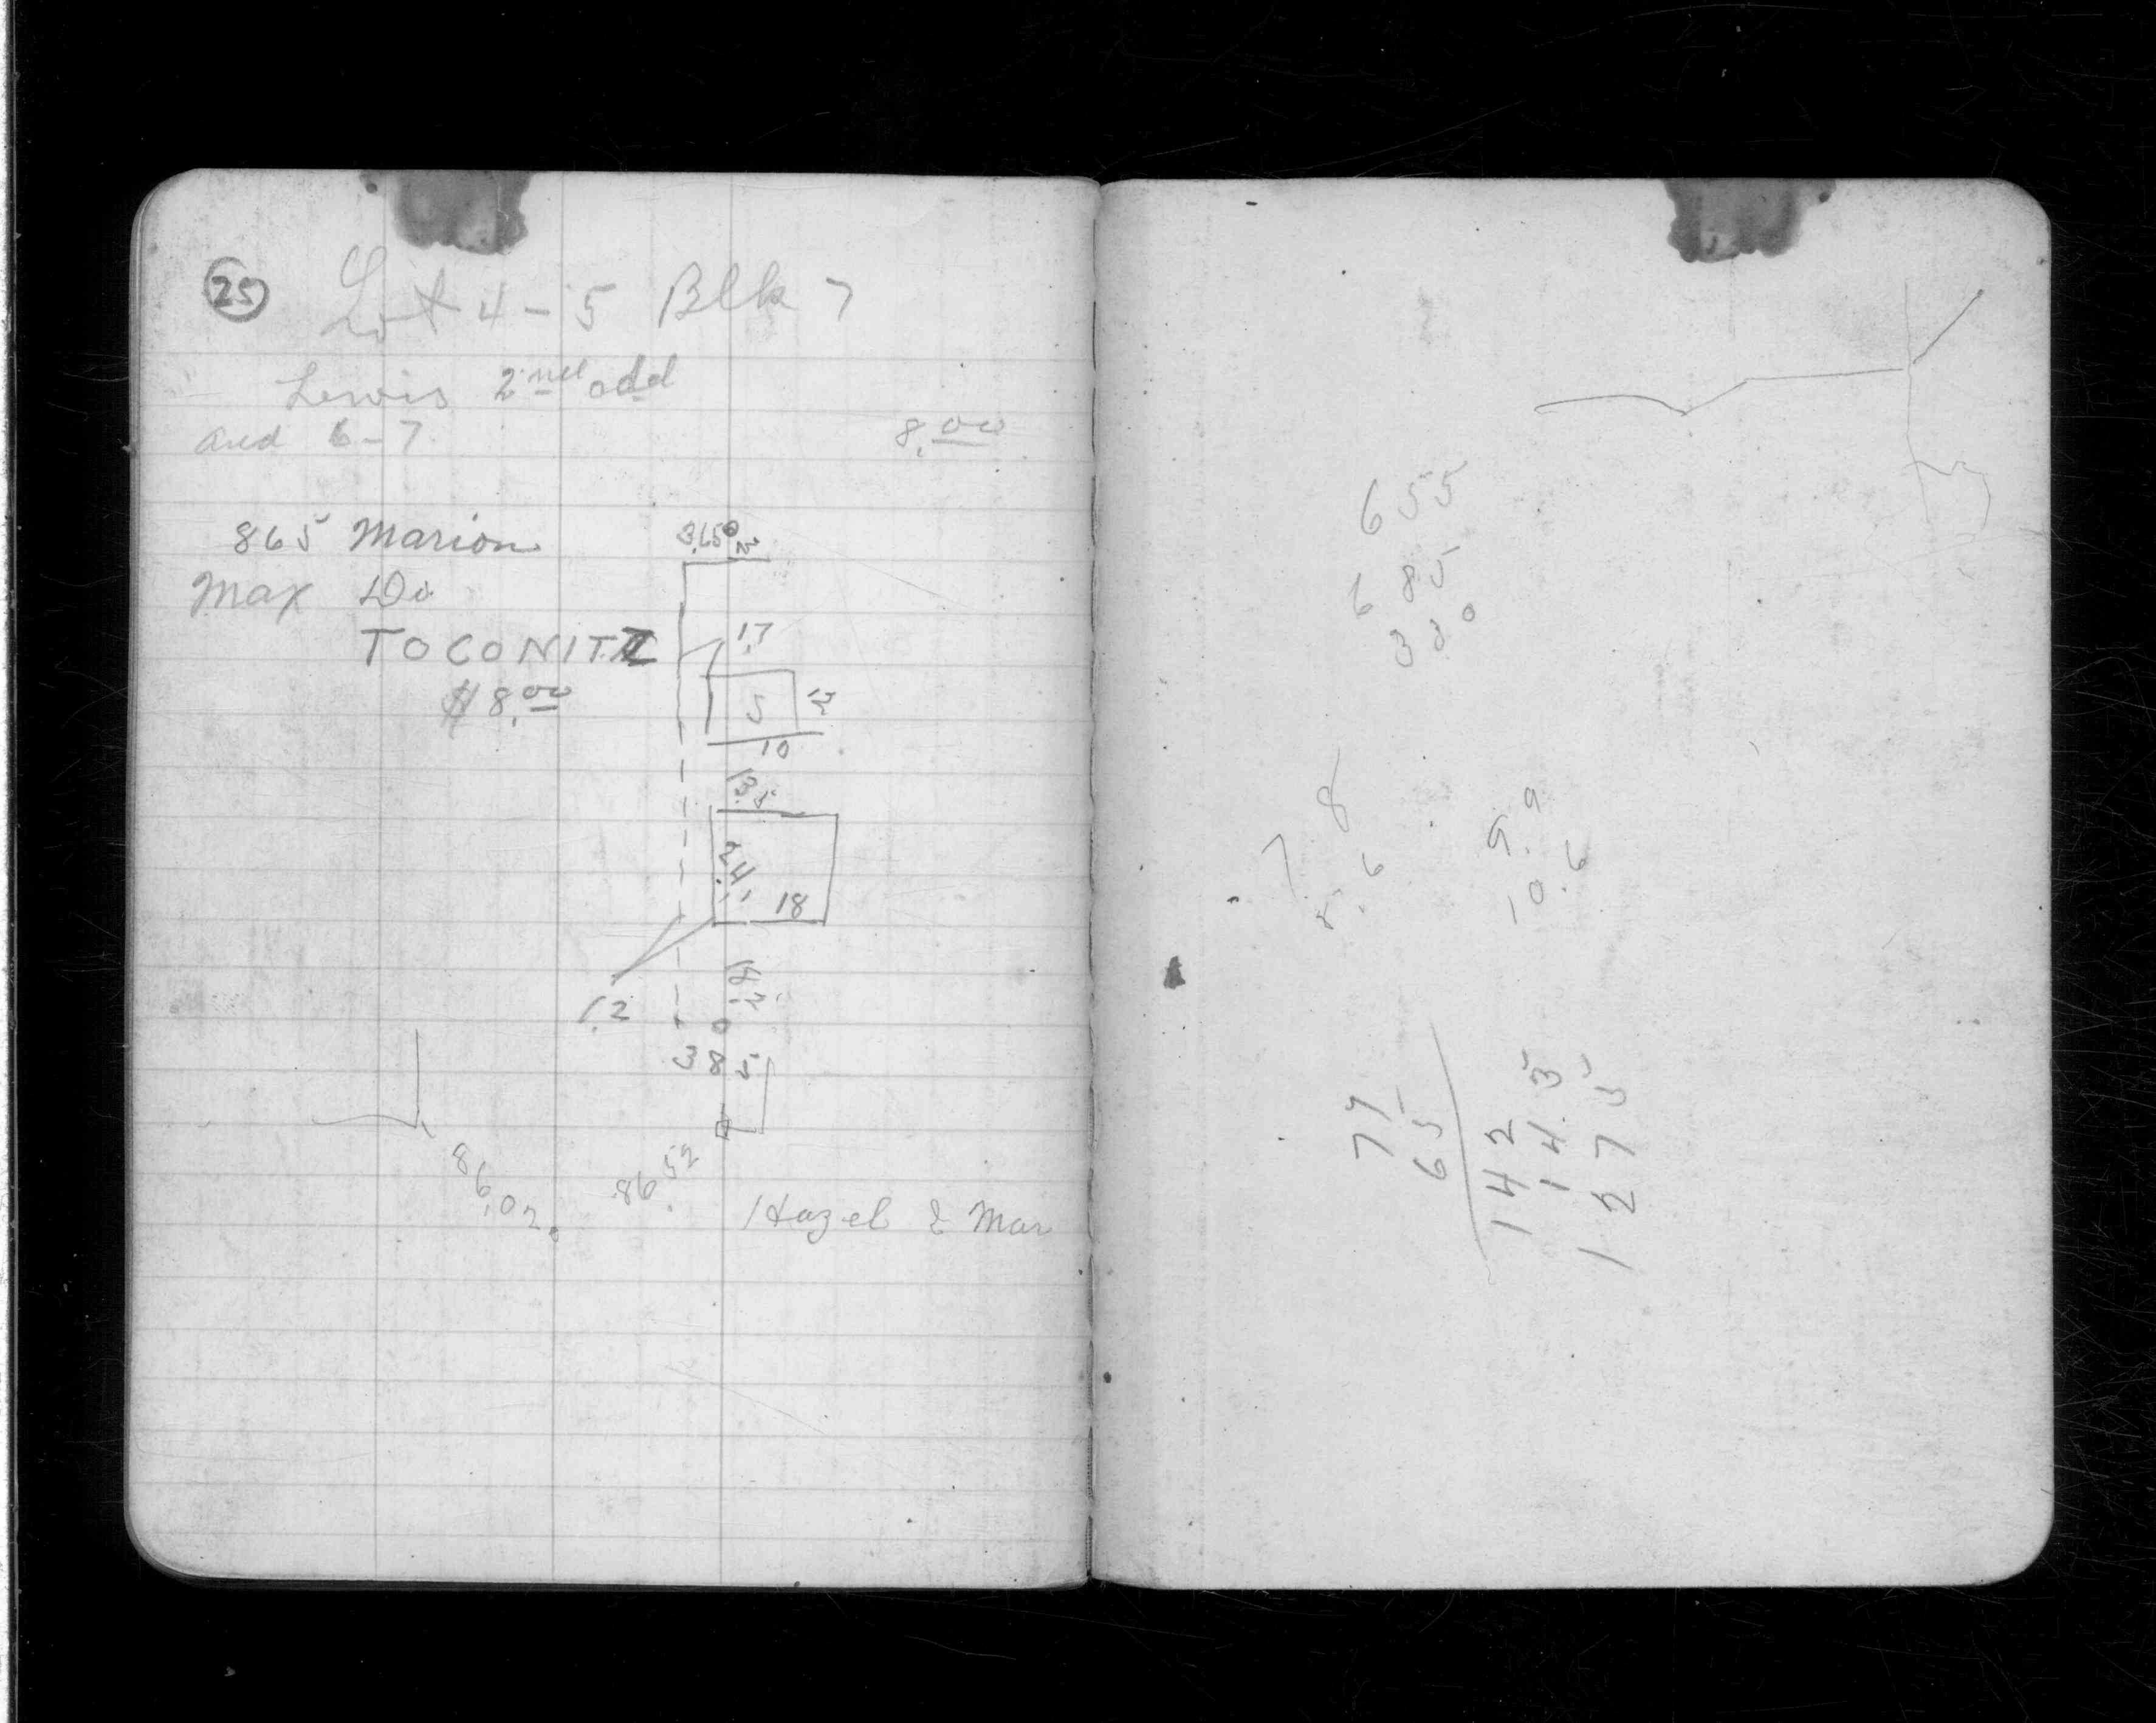 25 Lot 4-5 Blk 7
Lewis 2nd add
and 6-7 8.00
865 Marion
Max Do
TOCONITZ
$8.00
1.7
5
10
13.5
24.
18
1.2
385
86.02
86.52
Hazel & Mar
655
685
330
78
.6
9.9
10.6
77
65
142
14.35
1275